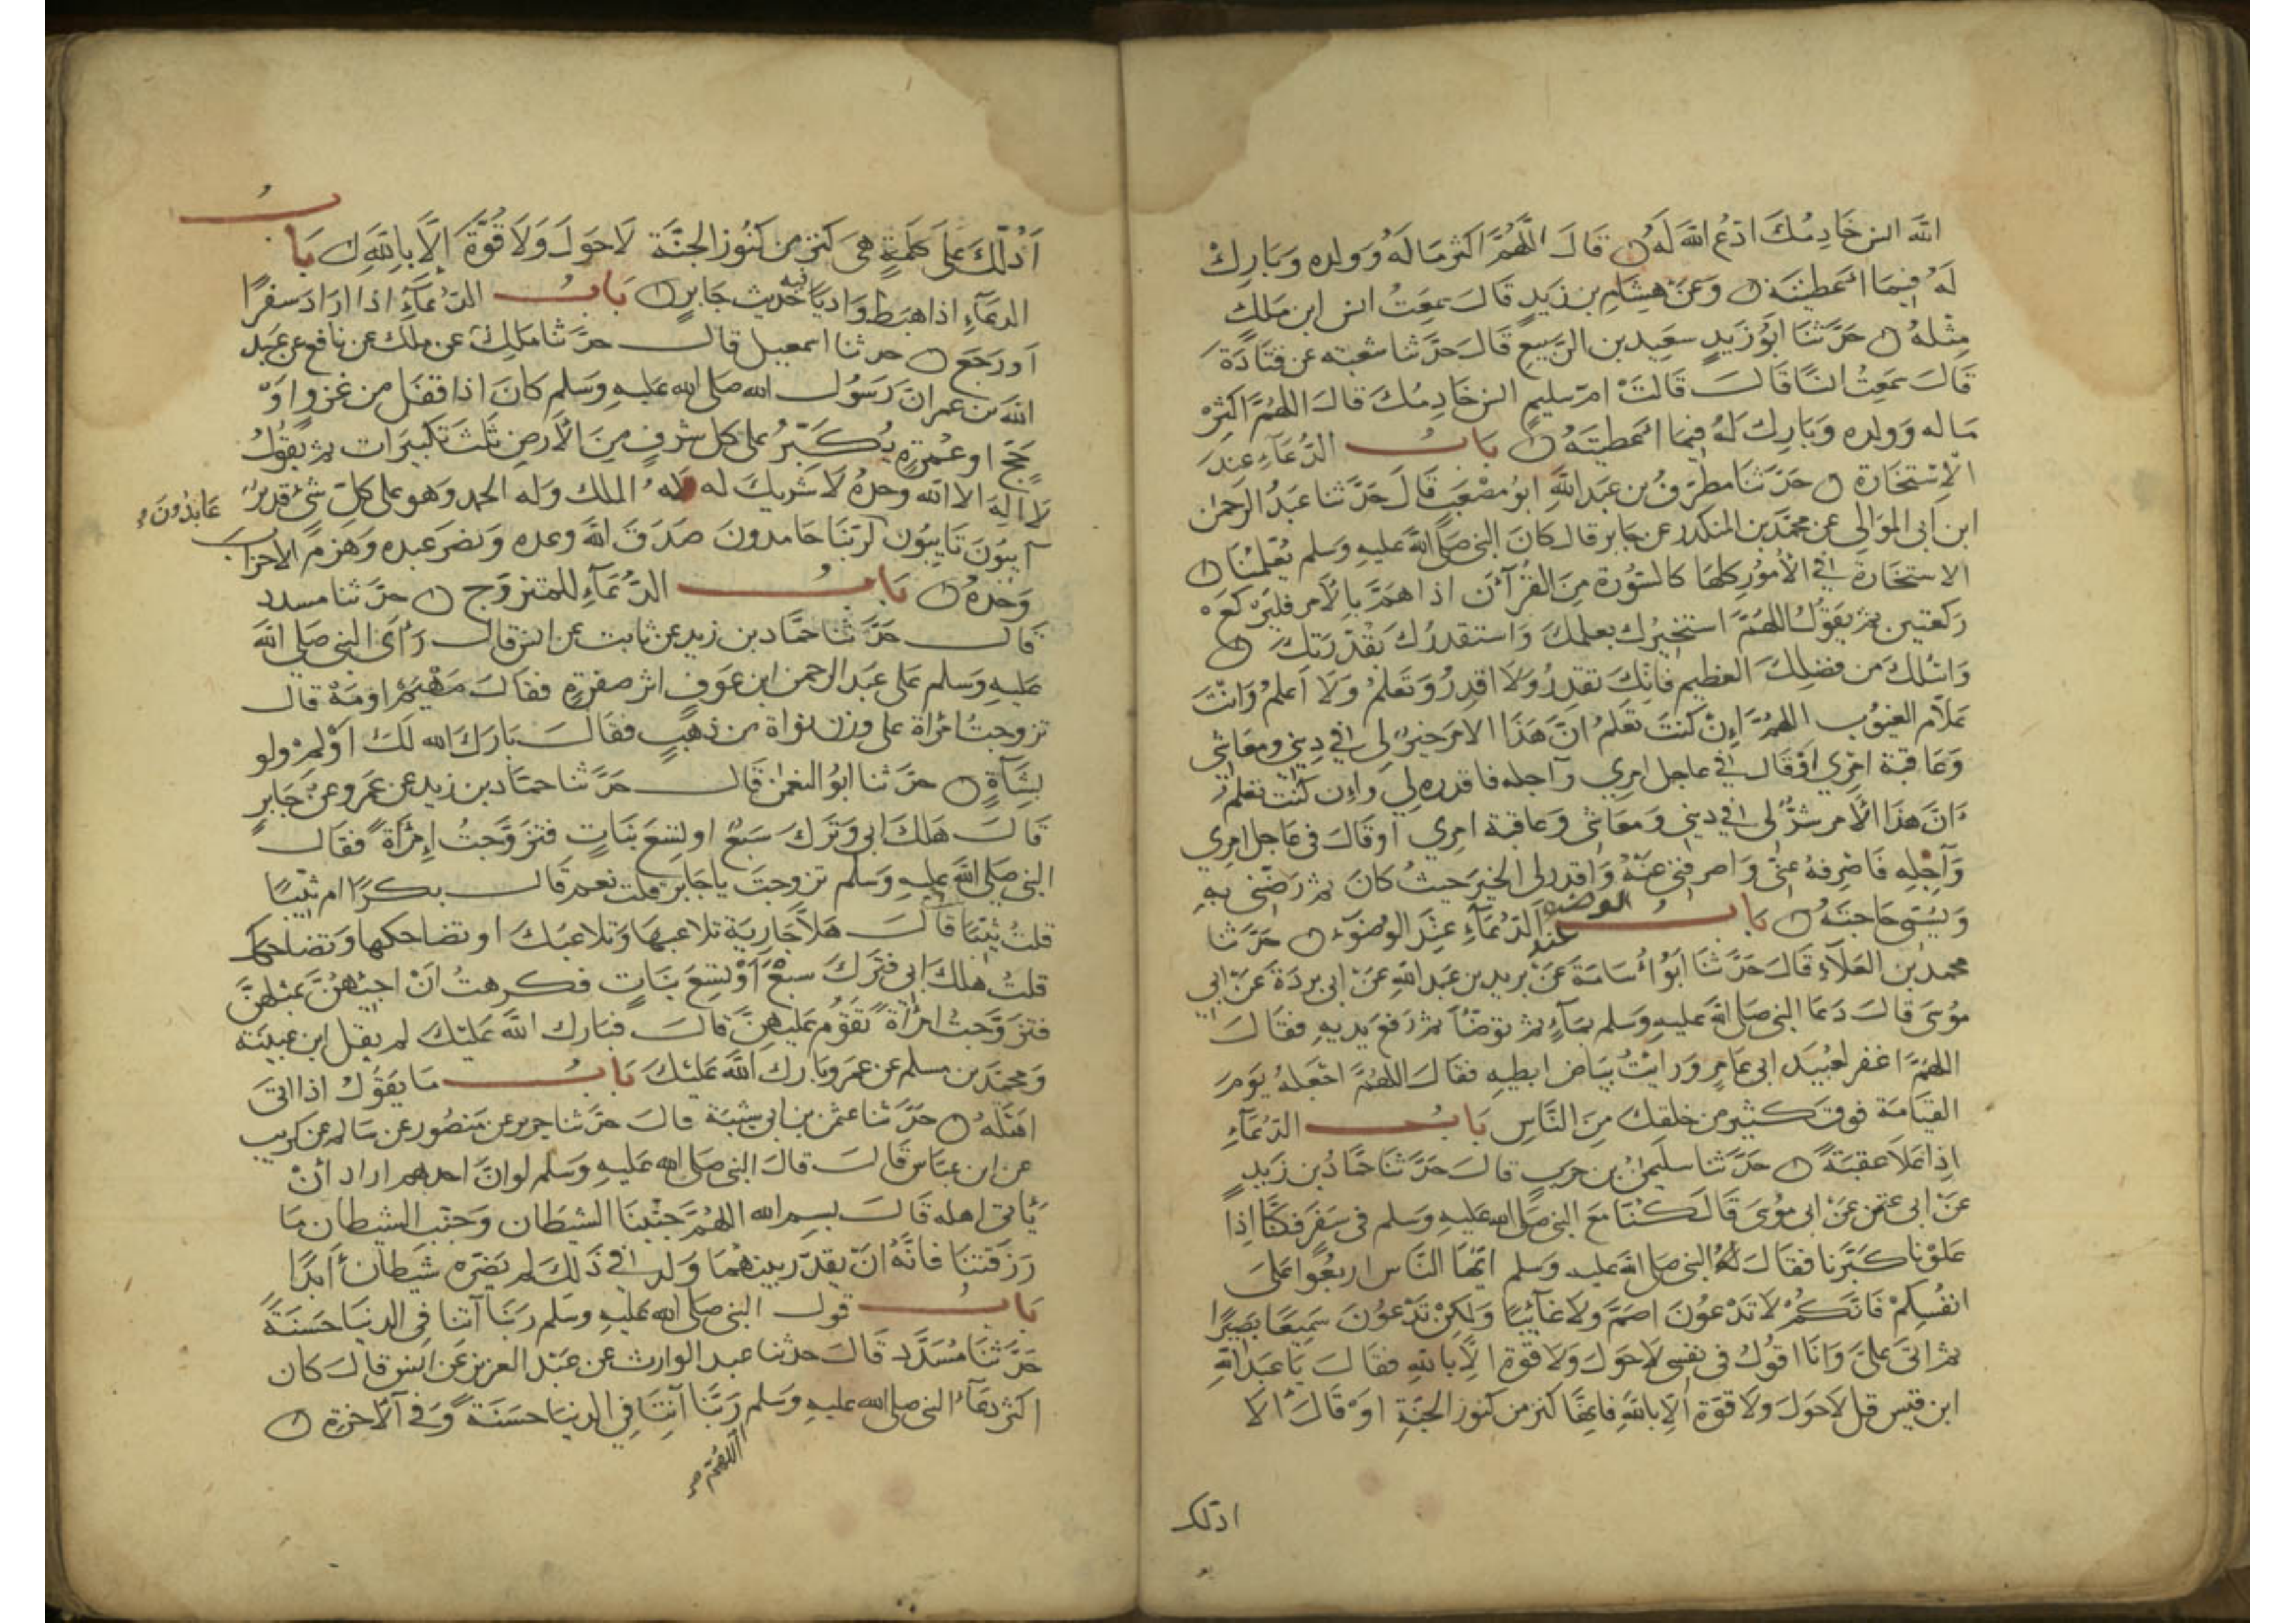 الله انس خادمك ادع الله له قال اللهم اكثر ماله وولده وبارك
له فيما اعطيته وعن هشام بن زيد قال سمعت انس ابن ملك
مثله حدثنا ابو زيد سعيد بن الربيع قال حدثنا شعبه عن قتادة
قال سمعت انسا قال قالت ام سليم انس خادمك قال اللهم اكثر
ماله وولده وبارك له فيما اعطيته باب الدعاء عند
الاستخارة حدثنا مطرف بن عبد الله ابو مصعب قال حدثنا عبد الرحمن
ابن ابي الموالي عن محمد بن المنكدر عن جابر قال كان النبي صلى الله عليه وسلم يعلمنا
الاستخارة في الأمور كلها كالسورة من القرآن اذا هم بالأمر فليركع
ركعتين ثم يقول اللهم استخيرك بعلمك واستقدرك بقدرتك
واسئلك من فضلك العظيم فانك تقدر ولا اقدر وتعلم ولا اعلم وانت
علام الغيوب اللهم إن كنت تعلم ان هذا الامر خير لي في ديني ومعاشي
وعاقبة امري او قال في عاجل امري وآجله فاقدره لي وإن كنت تعلم
ان هذا الأمر شر لي في ديني ومعاشي وعاقبة امري او قال في عاجل امري
وآجله فاصرفه عني واصرفني عنه واقدر لي الخير حيث كان ثم رضني به
ويسمي حاجته باب الدعاء عند الوضوء حدثنا
عند الوضوء
محمد بن العلاء قال حدثنا ابو أسامة عن بريد بن عبد الله عن ابي بردة عن ابي
موسى قال دعا النبي صلى الله عليه وسلم بماء ثم توضأ ثم رفع يديه فقال
اللهم اغفر لعبيد ابي عامر ورايت بياض ابطيه فقال اللهم اجعله يوم
القيامة فوق كثير من خلقك من الناس باب الدعاء
اذا علا عقبة حدثنا سليمن بن حرب قال حدثنا حماد بن زيد
عن ابي عثمن عن ابي موسى قال كنا مع النبي صلى الله عليه وسلم في سفر فكنا اذا
علونا كبرنا فقال النبي صلى الله عليه وسلم ايها الناس اربعوا على
انفسكم فانكم لا تدعون اصم ولا غائبا ولكن تدعون سميعا بصيرا
ثم اتى علي وانا اقول في نفسي لا حول ولا قوة الا بالله فقال يا عبد الله
ابن قيس قل لا حول ولا قوة الا بالله فانها كنز من كنوز الجنة او قال ألا
ادلك
أدلك على كلمة هي كنز من كنوز الجنة لا حول ولا قوة إلا بالله باب
الدعاء اذا هبط واديا فيه حديث جابر باب الدعاء اذا اراد سفرا
او رجع حدثنا اسمعيل قال حدثنا مالك عن ملك عن نافع عن عبد
الله بن عمر ان رسول الله صلى الله عليه وسلم كان اذا قفل من غزو او
حج او عمرة يكبر على كل شرف من الأرض ثلث تكبيرات ثم يقول
لا اله الا الله وحده لا شريك له له الملك وله الحمد وهو على كل شئ قدير
آيبون تايبون لربنا حامدون صدق الله وعده ونصر عبده وهزم الأحزاب
عابدون
وحده باب الدعاء للمتزوج حدثنا مسدد
قال حدثنا حماد بن زيد عن ثابت عن انس قال رأى النبي صلى الله
عليه وسلم على عبد الرحمن ابن عوف اثر صفرة فقال مهيم او مه قال
تزوجت امرأة على وزن نواة من ذهب فقال بارك الله لك أولم ولو
بشاة حدثنا ابو النعمن قال حدثنا حماد بن زيد عن عمرو عن جابر
قال هلك ابي وترك سبع او تسع بنات فتزوجت إمرأة فقال
النبي صلى الله عليه وسلم تزوجت يا جابر قلت نعم قال بكرا ام ثيبا
قلت ثيبا قال هلا جارية تلاعبها وتلاعبك او تضاحكها وتضاحكك
قلت هلك ابي فترك سبع أو تسع بنات فكرهت ان اجيئهن بمثلهن
فتزوجت امرأة تقوم عليهن قال فبارك الله عليك لم يقل ابن عيينة
ومحمد بن مسلم عن عمرو بارك الله عليك باب ما يقول اذا اتى
اهله حدثنا عثمن بن ابي شيبة قال حدثنا جرير عن منصور عن سالم عن كريب
عن ابن عباس قال قال النبي صلى الله عليه وسلم لو ان احدهم اراد أن
يأتي اهله قال بسم الله اللهم جنبنا الشيطان وجنب الشيطان ما
رزقتنا فانه ان يقدر بينهما ولد في ذلك لم يضره شيطان أبدا
باب قول النبي صلى الله عليه وسلم ربنا آتنا في الدنيا حسنة
حدثنا مسدد قال حدثنا عبد الوارث عن عبد العزيز عن انس قال كان
اكثر دعاء النبي صلى الله عليه وسلم ربنا آتنا في الدنيا حسنة وفي الآخرة
اللهم